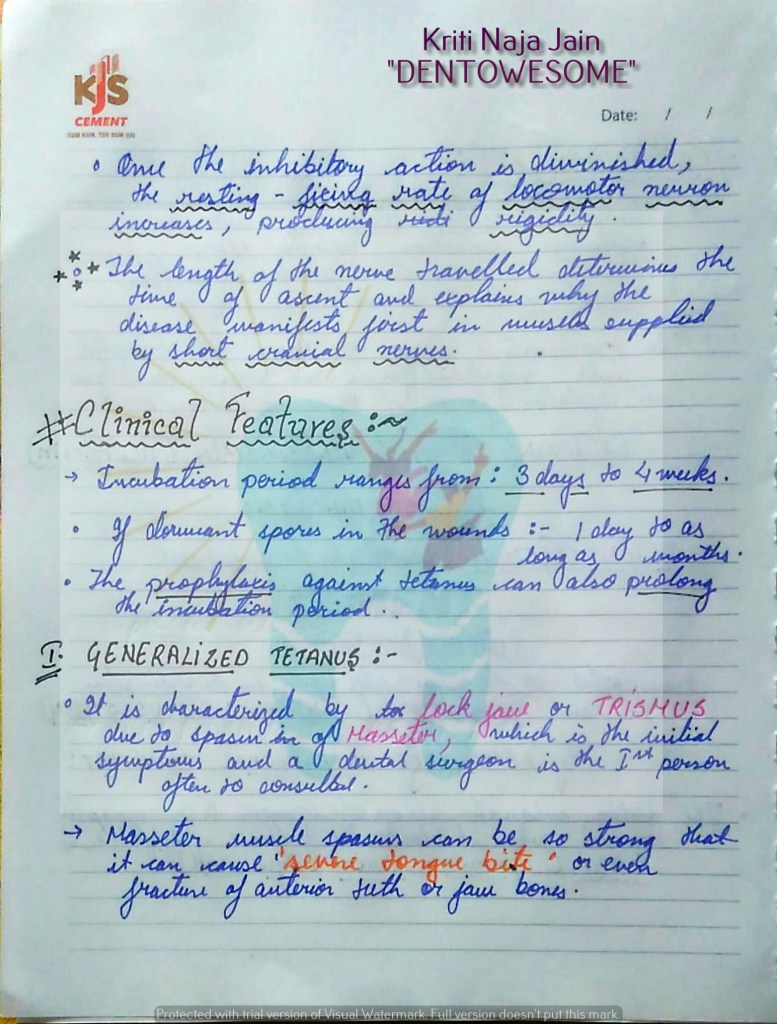 Kriti Naja Jain
"DENTOWESOME"
KJS
CEMENT
Date: / /
• Once the inhibitory action is diminished,
the resting - firing rate of locomotor neuron
increases, producing ridi rigidity.
• The length of the nerve travelled determines the
time of ascent and explains why the
disease manifests first in muscles supplied
by short cranial nerves.
# Clinical Features :~
→ Incubation period ranges from : 3 days to 4 weeks.
• If dormant spores in the wounds :- 1 day to as
long as months.
• The prophylaxis against tetanus can also prolong
the incubation period..
I. GENERALIZED TETANUS :-
• It is characterized by lock jaw or TRISMUS
due to spasm in of Masseter, which is the initial
symptoms and a dental surgeon is the Ist person
often to consulted.
→ Masseter muscle spasms can be so strong that
it can cause "severe tongue bite" or even
fracture of anterior teeth or jaw bones.
Protected with trial version of Visual Watermark. Full version doesn't put this mark.